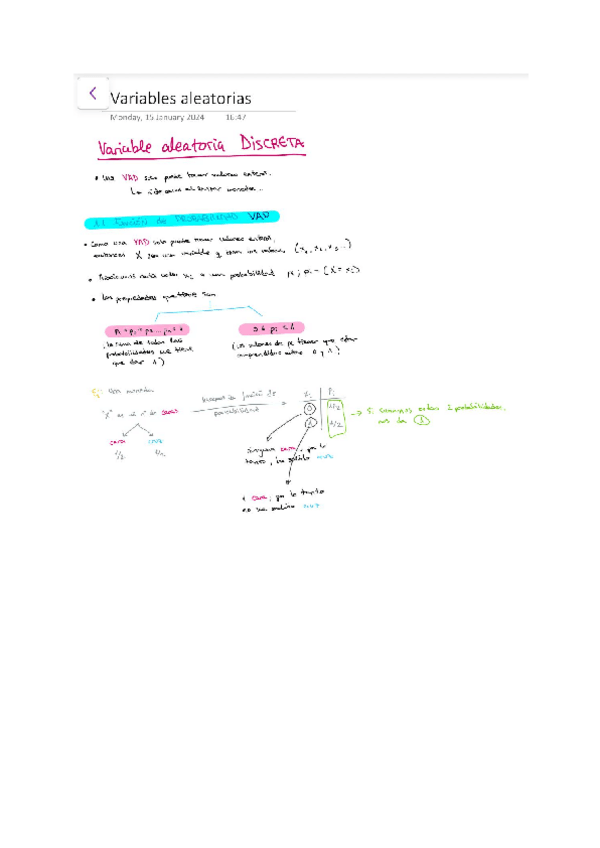 Variables aleatorias
Monday, 15 January 2024 16:47
Variable aleatoria DISCRETA
• Una VAD solo puede tomar valores enteros.
Lo
1.1 Función de PROBABILIDAD VAD
• Como una VAD solo puede tomar valores enteros,
entonces X una variable y valores (x₁, x₂, x₃...)
• cada valor xᵢ a una probabilidad pᵢ; pᵢ = (X = xᵢ)
• Las propiedades que tiene son
0 ≤ pᵢ ≤ 1
(la suma de todas las
probabilidades me tiene
que dar 1)
(Los valores de pᵢ tienen que estar
comprendidos entre 0 y 1)
Ej: Una moneda
"X" es el nº de caras
función de
probabilidad
=
xᵢ pᵢ
0 1/2
1 1/2
→ Si sumamos estas 2 probabilidades,
nos da 1
cara cruz
1/2 1/2
ninguna cara, por lo
tanto, ha salido cruz
1 cara, por lo tanto
no ha salido cruz